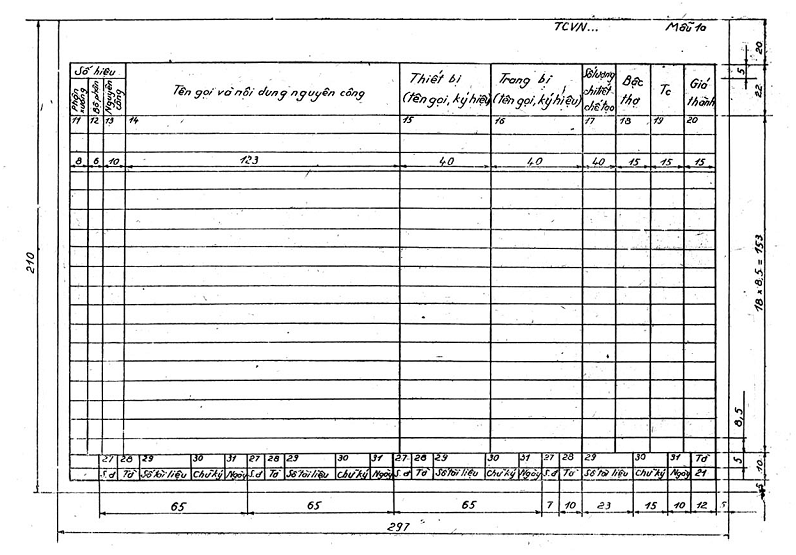 TCVN... Mẫu 1a
Số hiệu
Phân xưởng
Bộ phận
Nguyên công
Tên gọi và nội dung nguyên công
Thiết bị
(tên gọi, ký hiệu)
Trang bị
(tên gọi, ký hiệu)
Số lượng
chi tiết
chế tạo
Bậc
thợ
Tc
Giá
thành
11 12 13 14 15 16 17 18 19 20
8 6 10 123 40 40 40 15 15 15
27 28 29 30 31 27 28 29 30 31 27 28 29 30 31 27 28 29 30 31 Tờ
S.đ Tờ Số tài liệu Chữ ký Ngày S.đ Tờ Số tài liệu Chữ ký Ngày S.đ Tờ Số tài liệu Chữ ký Ngày S.đ Tờ Số tài liệu Chữ ký Ngày 21
65 65 65 7 10 23 15 10 12 5
297
210
20
5
22
18 x 8,5 = 153
8,5
5
10
5